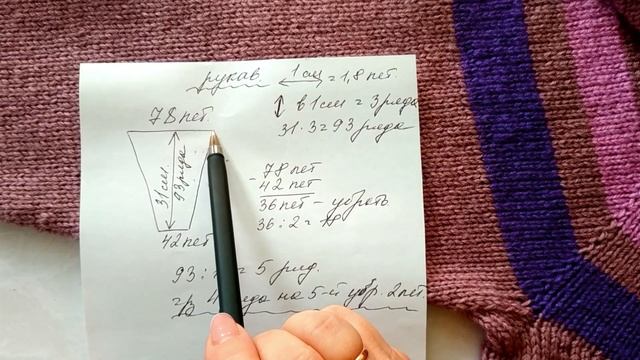 рукав 1 см = 1,8 пет.
78 пет. в 1 см = 3 ряда
31·3 = 93 ряда
31 см.
93 ряда
42 пет
- 78 пет
42 пет
36 пет - убрать
36 : 2 =
93 : = 5 ряд.
4 ряда на 5-й убр. 2 пет.